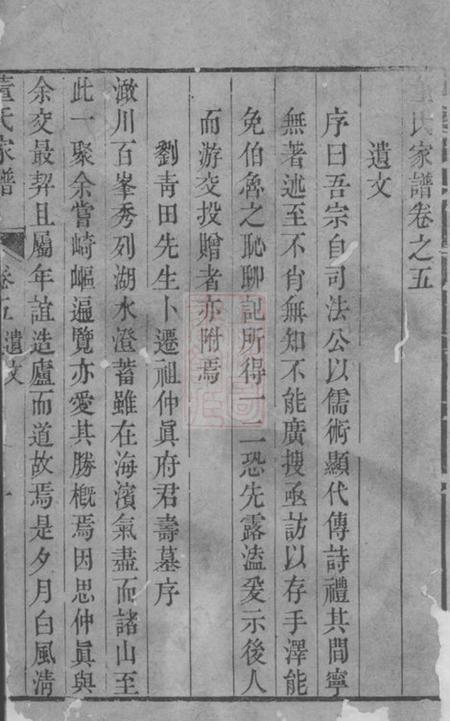 董氏家譜卷之五
遺文
序曰吾宗自司法公以儒術顯代傳詩禮其間寧
無著述至不肖無知不能廣搜亟訪以存手澤能
免伯魯之恥聊記所得一二恐先露溘爰示後人
而游交投贈者亦附焉
劉青田先生卜遷祖仲眞府君壽墓序
澉川百峯秀列湖水澄著雖在海濱氣盡而諸山至
此一聚余嘗崎嶇遍覽亦愛其勝槪焉因思仲眞與
余交最契且屬年誼造廬而道故焉是夕月白風清
董氏家譜 卷五 遺文 一